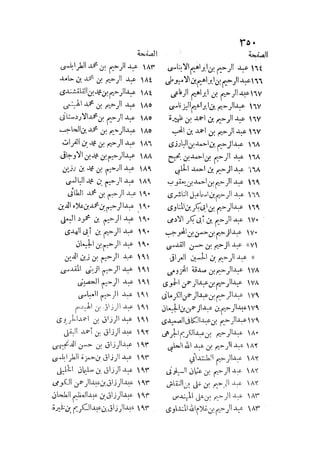 ٣٥٠
الصحيفة
١٦٤ عبد الرحيم بن ابراهيم الابناسى
١٦٦ عبد الرحيم بن ابراهيم الاميوطى
١٦٧ عبد الرحيم بن ابراهيم الرفاعى
١٦٧ عبد الرحيم بن ابراهيم اليزناسى
١٦٧ عبد الرحيم بن احمد بن ظهيرة
١٦٧ عبد الرحيم بن احمد بن المحب
١٦٨ عبد الرحيم بن احمد بن البارزى
١٦٨ عبد الرحيم بن احمد بن بحيح
١٦٨ عبد الرحيم بن احمد الحلبى
١٦٩ عبد الرحيم بن احمد بن يعقوب
١٦٩ عبد الرحيم بن اسماعيل الناشرى
١٦٩ عبد الرحيم بن ابى بكر بن المناوى
١٧٠ عبد الرحيم بن أبى بكر الادمى
١٧٠ عبد الرحيم بن حسن بن المحوجب
عبد الرحيم بن حسن القدسى
عبد الرحيم بن الحسين العراقى
١٧٨ عبد الرحيم بن صدقة المخزومى
١٧٨ عبد الرحيم بن عبد الرحمن الحموى
١٧٩ عبد الرحيم بن عبد الرحمن الكرمانى
١٧٩ عبد الرحيم بن عبد الرحمن بن الجيعان
١٧٩ عبد الرحيم بن عبد الكافى الصميدى
١٨٠ عبد الرحيم بن عبد الكريم الجرهى
١٨٢ عبد الرحيم بن عبد الله الحلبى
١٨٢ عبد الرحيم الطنتدائى
١٨٢ عبد الرحيم بن عثمان
١٨٢ عبد الرحيم بن على بن النقاش
١٨٣ عبد الرحيم بن على المهندس
١٨٣ عبد الرحيم بن غلام الله المنشاوى
الصحيفة
١٨٣ عبد الرحيم بن محمد الطرابلسى
١٨٤ عبد الرحيم بن محمد بن حامد
١٨٤ عبد الرحيم بن محمد بن القلقشندى
١٨٥ عبد الرحيم بن محمد الهيثمى
١٨٥ عبد الرحيم بن محمد الاردستانى
١٨٥ عبد الرحيم بن محمد بن الحاجب
١٨٦ عبد الرحيم بن محمد بن الفرات
١٨٨ عبد الرحيم بن محمد بن الاوجاقى
١٨٩ عبد الرحيم بن محمد بن رزين
١٨٩ عبد الرحيم بن محمد البالسى
١٨٩ عبد الرحيم بن محمد الطائى
١٩٠ عبد الرحيم بن محمد بن علاء الدين
١٩٠ عبد الرحيم بن محمود البعلى
١٩٠ عبد الرحيم بن أبى الهدى
١٩٠ عبد الرحيم بن الجيعان
١٩٠ عبد الرحيم بن زين الدين
١٩١ عبد الرحيم الزينى المقدسى
١٩١ عبد الرحيم الحصينى
١٩١ عبد الرحيم العباسى
١٩١ عبد الرزاق بن ابراهيم
١٩١ عبد الرزاق بن احمد
١٩١ عبد الرزاق بن أحمد البقلى
١٩٢ عبد الرزاق بن حسن الدنجيهى
١٩٢ عبد الرزاق بن حمزة الطرابلسى
١٩٣ عبد الرزاق بن سليمان الخليلى
١٩٣ عبد الرزاق بن عبد الرحمن الكومى
١٩٣ عبد الرزاق بن عبد العظيم الطحان
١٩٣ عبد الرزاق بن عبد الكريم بن فخيرة